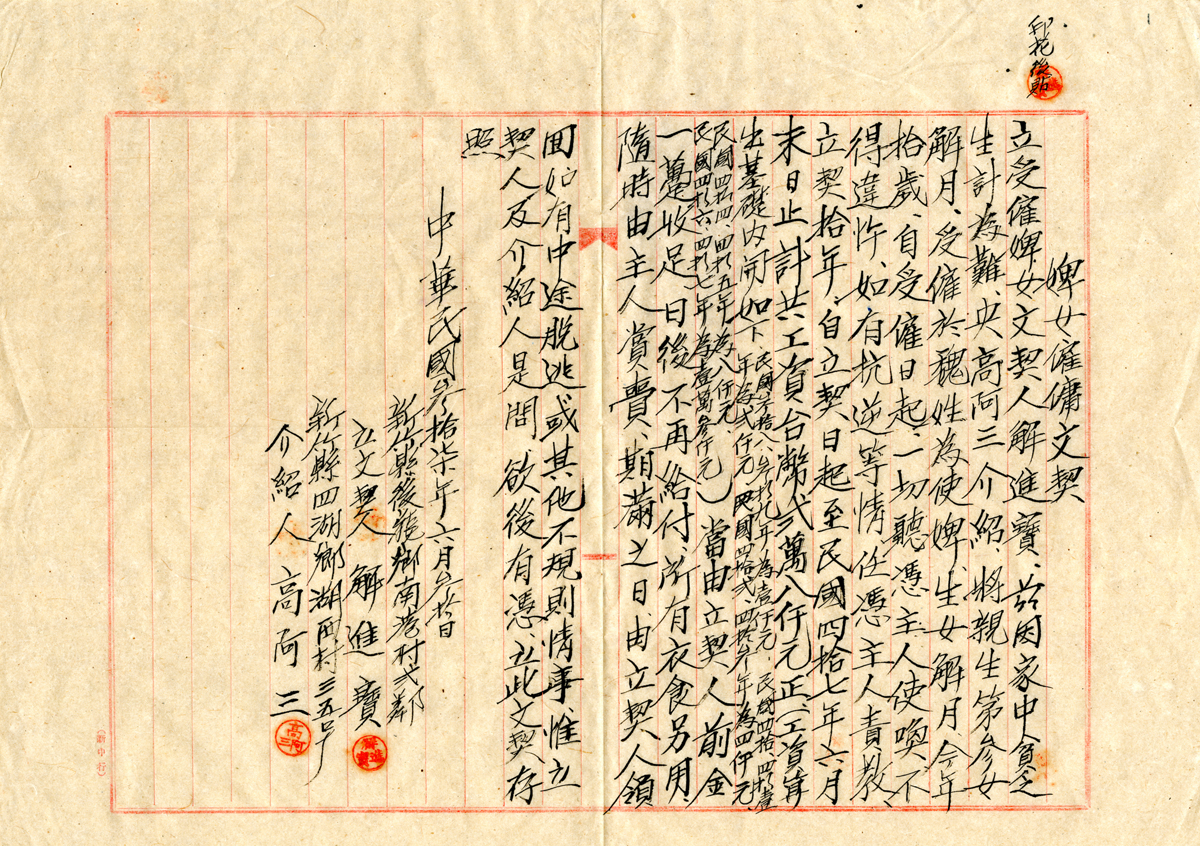 印花後貼
婢女僱傭文契
立受僱婢女文契人解進寶、茲因家中貧乏
生計為難央高阿三介紹、將親生第參女
解月、受僱於魏姓為使婢、生女解月、今年
拾歲、自受僱日起、一切聽憑主人使喚、不
得違忤、如有抗逆等情任憑主人責教、
立契拾年、自立契日起至民國四拾七年六月
末日止、計共工資台幣弍萬八仟元正、(工資算
出基礎內開如下、民國參拾八、參拾九年為壹仟元、民國四拾、四拾壹
年為弍仟元、民國四拾弍、四拾參年為四仟元、
民國四拾四、四拾五年為八仟元、
民國四拾六、四拾七年為壹萬參仟元)當由立契人前金
一躉收足、日後不再給付、所有衣食另用、
隨時由主人賞賣、期滿之日、由立契人領
回如有中途脫逃或其他不規則情事、惟立
契人及介紹人是問、欲後有憑、立此文契存
照
中華民國參拾柒年六月參拾日
新竹縣後龍鄉南港村弍鄰
立文契人 解進寶
解進寶
新竹縣四湖鄉湖西村三五号
介紹人 高阿三
高阿三
(新中行)